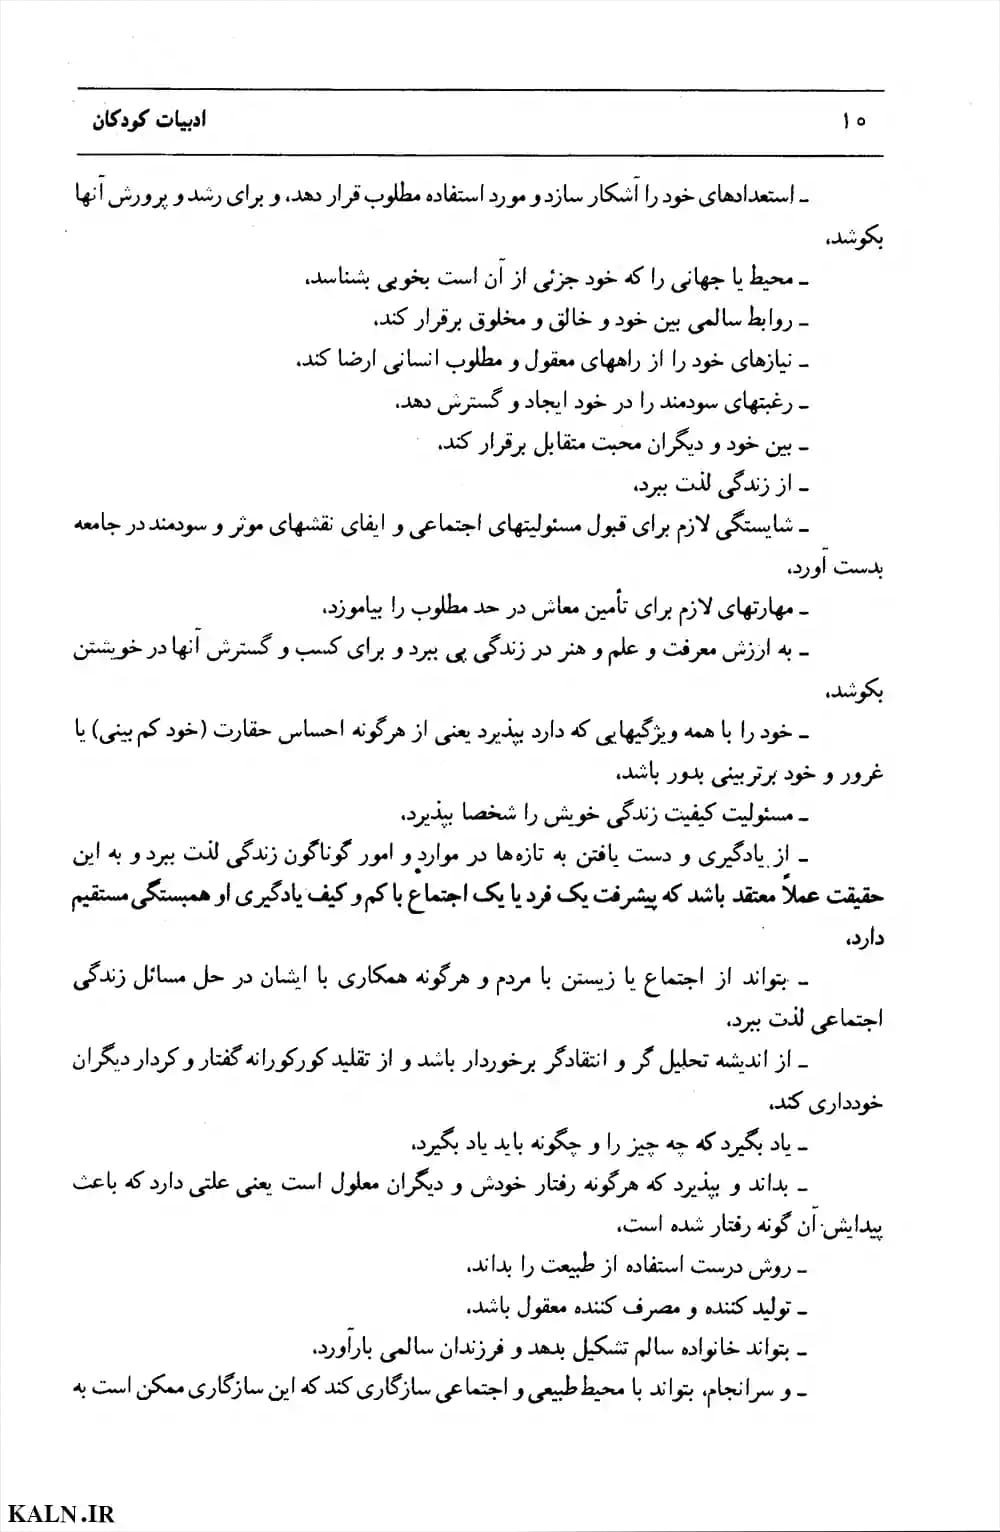 ۱۰
ادبیات کودکان
ـ استعدادهای خود را آشکار سازد و مورد استفاده مطلوب قرار دهد، و برای رشد و پرورش آنها
بکوشد،
ـ محیط یا جهانی را که خود جزئی از آن است بخوبی بشناسد،
ـ روابط سالمی بین خود و خالق و مخلوق برقرار کند،
ـ نیازهای خود را از راههای معقول و مطلوب انسانی ارضا کند،
ـ رغبتهای سودمند را در خود ایجاد و گسترش دهد،
ـ بین خود و دیگران محبت متقابل برقرار کند،
ـ از زندگی لذت ببرد،
ـ شایستگی لازم برای قبول مسئولیتهای اجتماعی و ایفای نقشهای موثر و سودمند در جامعه
بدست آورد،
ـ مهارتهای لازم برای تأمین معاش در حد مطلوب را بیاموزد،
ـ به ارزش معرفت و علم و هنر در زندگی پی ببرد و برای کسب و گسترش آنها در خویشتن
بکوشد،
ـ خود را با همه ویژگیهایی که دارد بپذیرد یعنی از هرگونه احساس حقارت (خود کم بینی) یا
غرور و خود برتربینی بدور باشد،
ـ مسئولیت کیفیت زندگی خویش را شخصا بپذیرد،
ـ از یادگیری و دست یافتن به تازه‌ها در موارد و امور گوناگون زندگی لذت ببرد و به این
حقیقت عملاً معتقد باشد که پیشرفت یک فرد یا یک اجتماع با کم و کیف یادگیری او همبستگی مستقیم
دارد،
ـ بتواند از اجتماع یا زیستن با مردم و هرگونه همکاری با ایشان در حل مسائل زندگی
اجتماعی لذت ببرد،
ـ از اندیشه تحلیل گر و انتقادگر برخوردار باشد و از تقلید کورکورانه گفتار و کردار دیگران
خودداری کند،
ـ یاد بگیرد که چه چیز را و چگونه باید یاد بگیرد،
ـ بداند و بپذیرد که هرگونه رفتار خودش و دیگران معلول است یعنی علتی دارد که باعث
پیدایش آن گونه رفتار شده است،
ـ روش درست استفاده از طبیعت را بداند،
ـ تولید کننده و مصرف کننده معقول باشد،
ـ بتواند خانواده سالم تشکیل بدهد و فرزندان سالمی بارآورد،
ـ و سرانجام، بتواند با محیط طبیعی و اجتماعی سازگاری کند که این سازگاری ممکن است به
KALN.IR